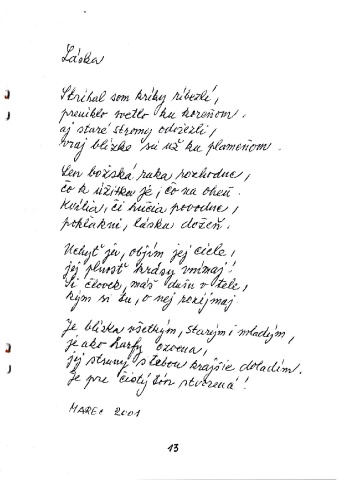 Láska
Strihal som kríky ríbezlí,
preniklo svetlo ku koreňom.
aj staré stromy odviezli,
vraj blízke sú už ku plameňom.
Len božská ruka rozhodne,
čo k úžitku je, čo na oheň.
Kvília, či hučia povodne,
pokľakni, láska dožeň.
Uchyť ju, objím jej ciele,
jej plnosť krásy vnímaj!
Si človek, máš dušu v tele,
kým si tu, o nej rozjímaj
Je blízka všetkým, starým i mladým,
je ako harfy ozvena,
jej struny s tebou krajšie doladím.
Je pre čistý tón stvorená!
MAREC 2001
13